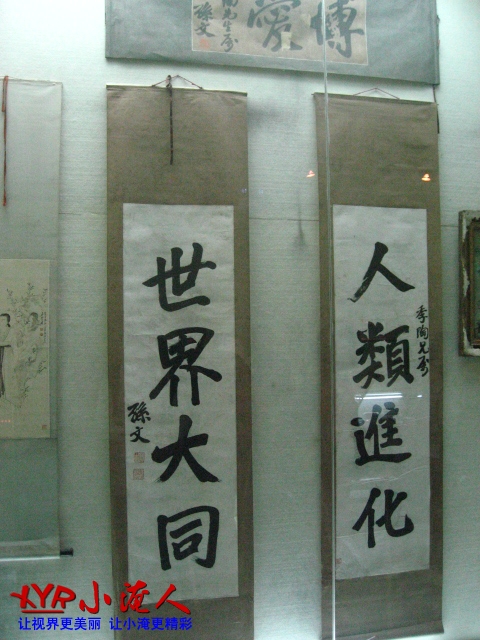 博愛
陶先生屬
孫文
人類進化
季陶兄屬
世界大同
孫文
XYR小淹人
让视界更美丽 让小淹更精彩